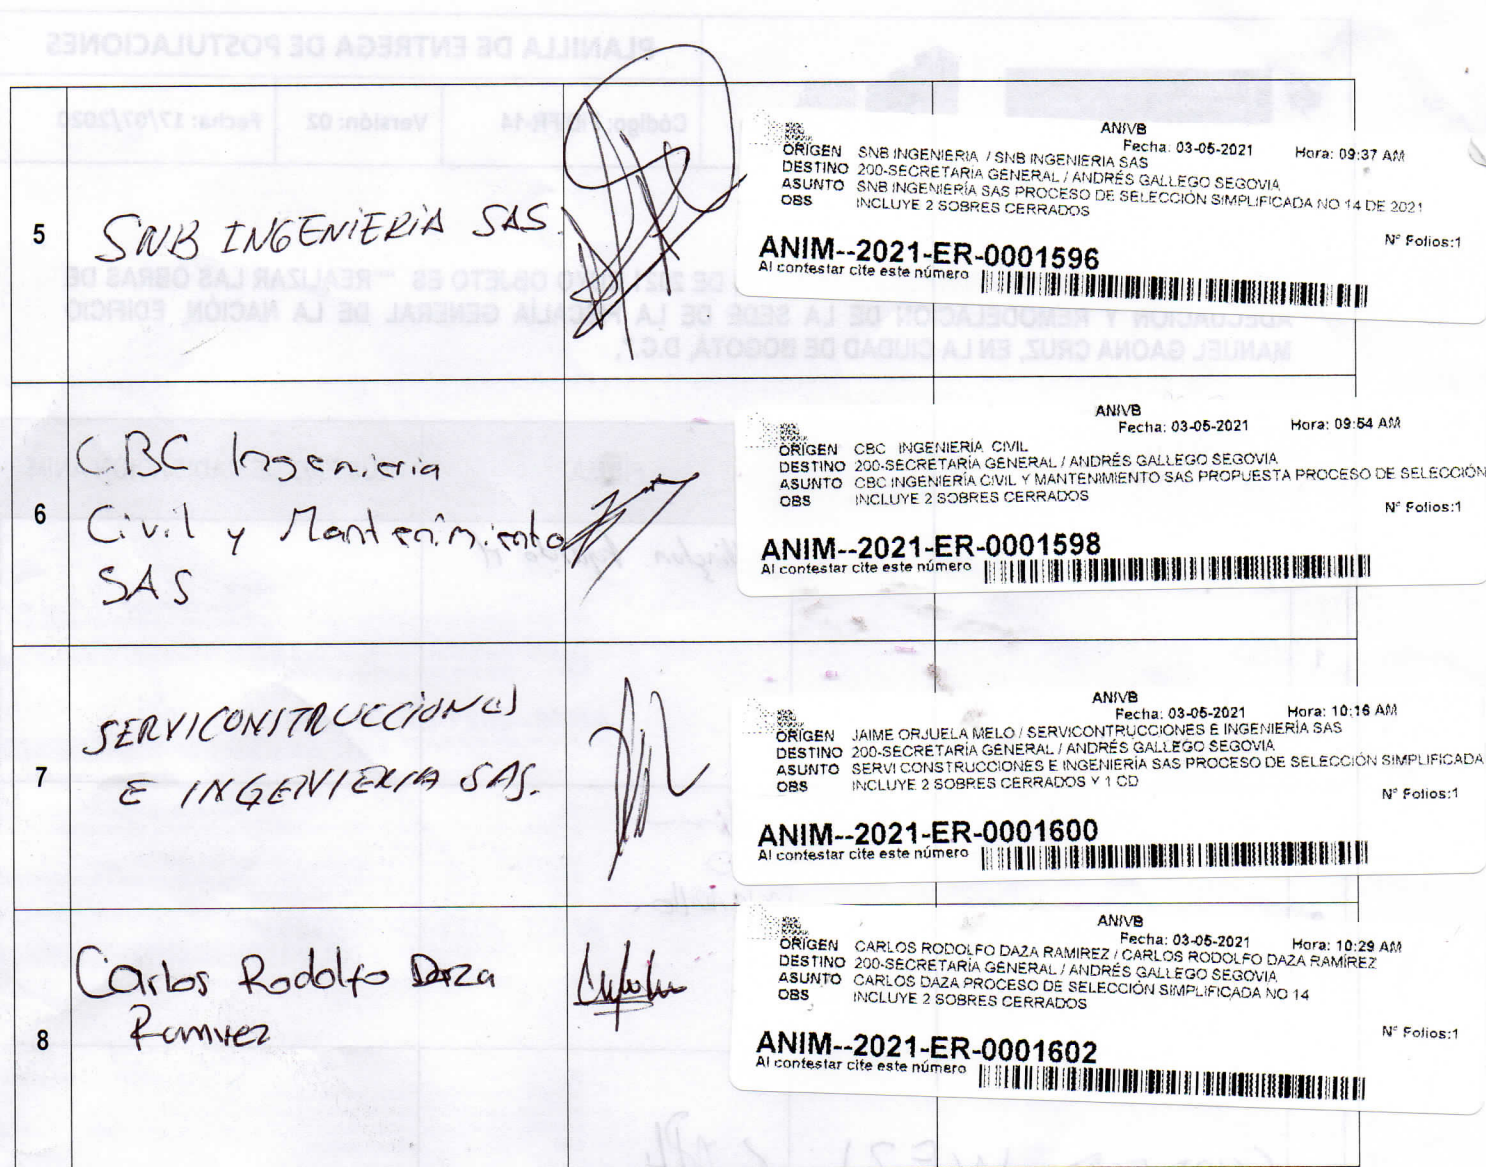 5
SNB INGENIERIA SAS.
ANIVB
Fecha: 03-05-2021 Hora: 09:37 AM
ORIGEN SNB INGENIERIA / SNB INGENIERIA SAS
DESTINO 200-SECRETARIA GENERAL / ANDRÉS GALLEGO SEGOVIA
ASUNTO SNB INGENIERÍA SAS PROCESO DE SELECCIÓN SIMPLIFICADA NO 14 DE 2021
OBS INCLUYE 2 SOBRES CERRADOS
N° Folios:1
ANIM--2021-ER-0001596
Al contestar cite este número
6
CBC Ingenieria
Civil y Mantenimiento
SAS
ANIVB
Fecha: 03-05-2021 Hora: 09:54 AM
ORIGEN CBC INGENIERÍA CIVIL
DESTINO 200-SECRETARÍA GENERAL / ANDRÉS GALLEGO SEGOVIA
ASUNTO CBC INGENIERÍA CIVIL Y MANTENIMIENTO SAS PROPUESTA PROCESO DE SELECCIÓN
OBS INCLUYE 2 SOBRES CERRADOS
N° Folios:1
ANIM--2021-ER-0001598
Al contestar cite este número
7
SERVICONSTRUCCIONES
E INGENIERIA SAS.
ANIVB
Fecha: 03-05-2021 Hora: 10:16 AM
ORIGEN JAIME ORJUELA MELO / SERVICONTRUCCIONES E INGENIERÍA SAS
DESTINO 200-SECRETARÍA GENERAL / ANDRÉS GALLEGO SEGOVIA
ASUNTO SERVI CONSTRUCCIONES E INGENIERÍA SAS PROCESO DE SELECCIÓN SIMPLIFICADA
OBS INCLUYE 2 SOBRES CERRADOS Y 1 CD
N° Folios:1
ANIM--2021-ER-0001600
Al contestar cite este número
8
Carlos Rodolfo Daza
Ramirez
ANIVB
Fecha: 03-05-2021 Hora: 10:29 AM
ORIGEN CARLOS RODOLFO DAZA RAMIREZ / CARLOS RODOLFO DAZA RAMÍREZ
DESTINO 200-SECRETARÍA GENERAL / ANDRÉS GALLEGO SEGOVIA
ASUNTO CARLOS DAZA PROCESO DE SELECCIÓN SIMPLIFICADA NO 14
OBS INCLUYE 2 SOBRES CERRADOS
N° Folios:1
ANIM--2021-ER-0001602
Al contestar cite este número